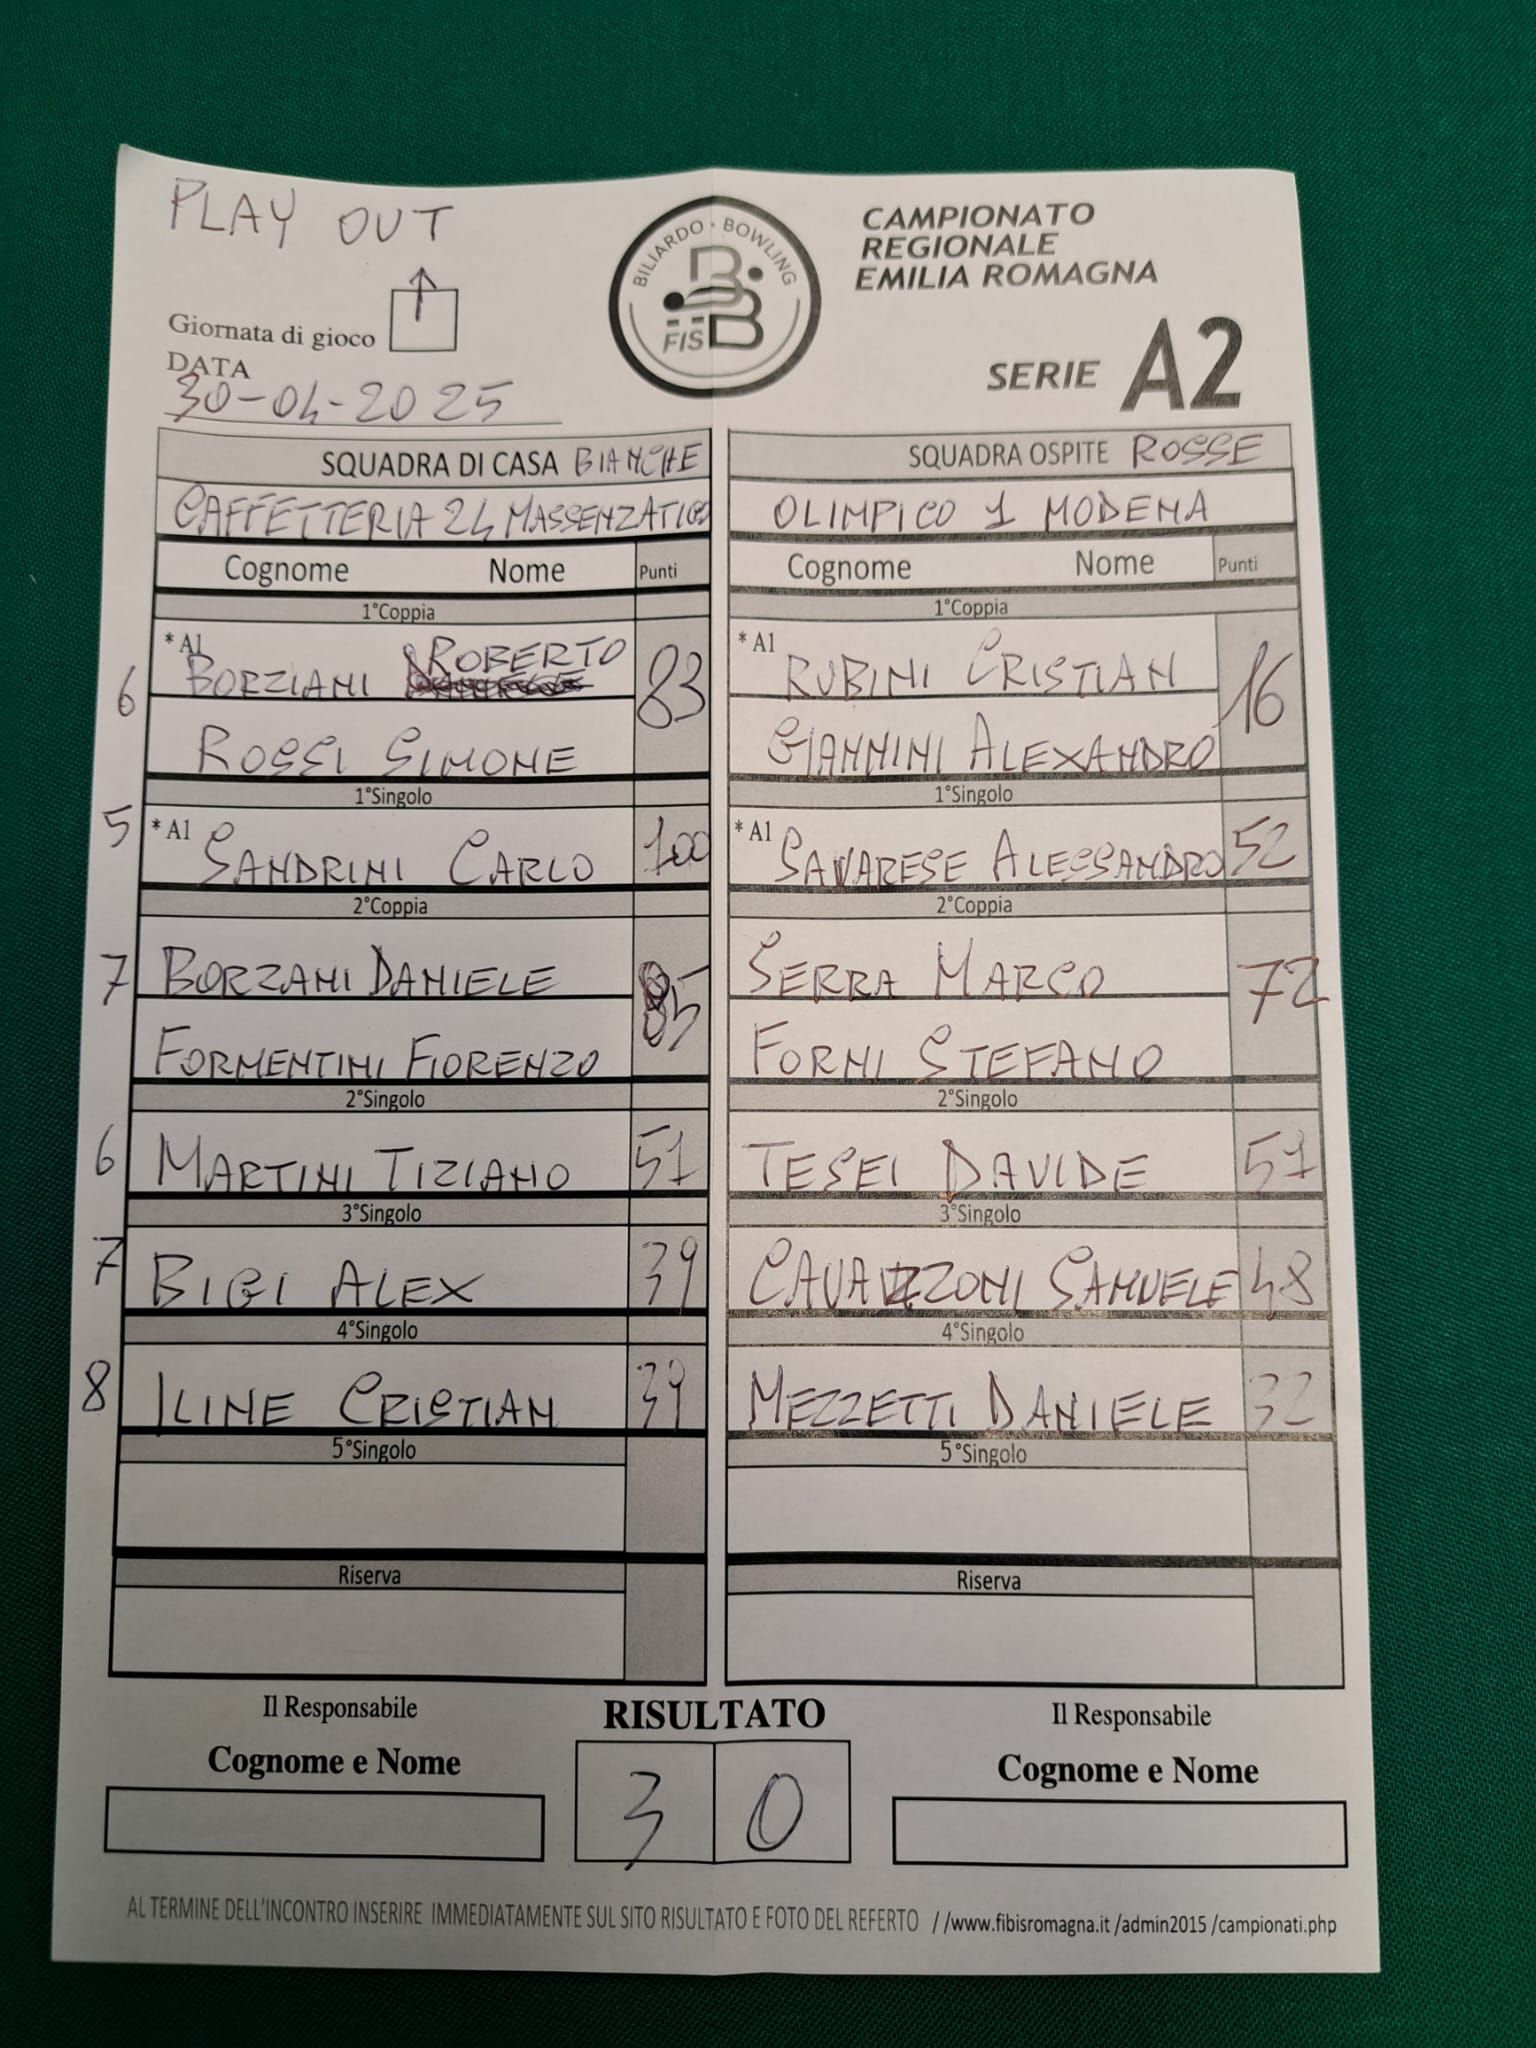 PLAY OUT
BILIARDO · BOWLING
FISBB
CAMPIONATO
REGIONALE
EMILIA ROMAGNA
SERIE A2
Giornata di gioco
DATA
30-04-2025
SQUADRA DI CASA BIANCHE
SQUADRA OSPITE ROSSE
CAFFETTERIA 24 MASSENZATICO
OLIMPICO 1 MODENA
Cognome Nome Punti
Cognome Nome Punti
1°Coppia
1°Coppia
*A1
6 BORZIANI ROBERTO 83
ROSSI SIMONE
*A1
RUBINI CRISTIAN 16
GIANNINI ALEXANDRO
1°Singolo
1°Singolo
5 *A1 SANDRINI CARLO 100
*A1 SAVARESE ALESSANDRO 52
2°Coppia
2°Coppia
7 BORZANI DANIELE 85
FORMENTINI FIORENZO
SERRA MARCO 72
FORNI STEFANO
2°Singolo
2°Singolo
6 MARTINI TIZIANO 51
TESEI DAVIDE 57
3°Singolo
3°Singolo
7 BIGI ALEX 39
CAVAZZONI SAMUELE 48
4°Singolo
4°Singolo
8 ILINE CRISTIAN 39
MEZZETTI DANIELE 32
5°Singolo
5°Singolo
Riserva
Riserva
Il Responsabile
RISULTATO
Il Responsabile
Cognome e Nome
Cognome e Nome
3 0
AL TERMINE DELL'INCONTRO INSERIRE IMMEDIATAMENTE SUL SITO RISULTATO E FOTO DEL REFERTO //www.fibisromagna.it /admin2015 /campionati.php